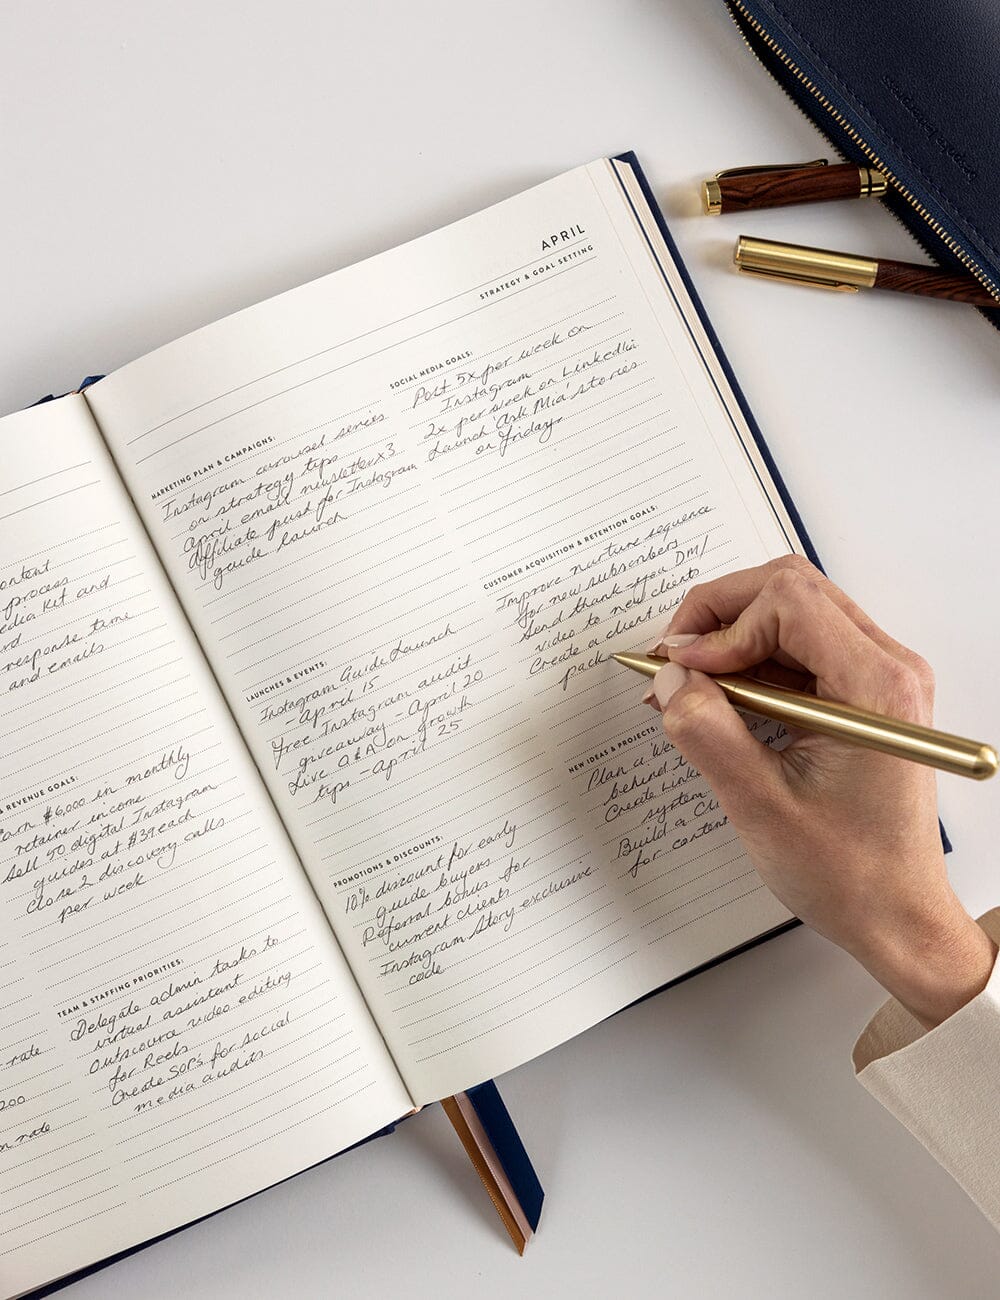 ontent
process
edia kit and
rd.
response time
and emails
& REVENUE GOALS:
Earn $6,000 in monthly
retainer income
Sell 50 digital Instagram
guides at $39 each
Close 2 discovery calls
per week
rate
200
n rate
TEAM & STAFFING PRIORITIES:
Delegate admin tasks to
virtual assistant
Outsource video editing
for Reels
Create SOP's for social
media audits
APRIL
STRATEGY & GOAL SETTING
MARKETING PLAN & CAMPAIGNS:
Instagram carousel series
on strategy tips
April email newsletter x3
Affiliate push for Instagram
guide launch
SOCIAL MEDIA GOALS:
Post 5x per week on
Instagram
2x per week on LinkedIn
Launch 'Ask Mia' stories
on Fridays
LAUNCHES & EVENTS:
Instagram Guide Launch
- April 15
Free Instagram audit
giveaway - April 20
Live Q&A on growth
tips - April 25
CUSTOMER ACQUISITION & RETENTION GOALS:
Improve nurture sequence
for new subscribers
Send thank-you DM/
video to new clients
Create a client wel
pack
PROMOTIONS & DISCOUNTS:
10% discount for early
guide buyers
Referral bonus for
current clients
Instagram Story exclusive
code
NEW IDEAS & PROJECTS:
Plan a 'We
behind t
Create Linke
system
Build a Cl
for content